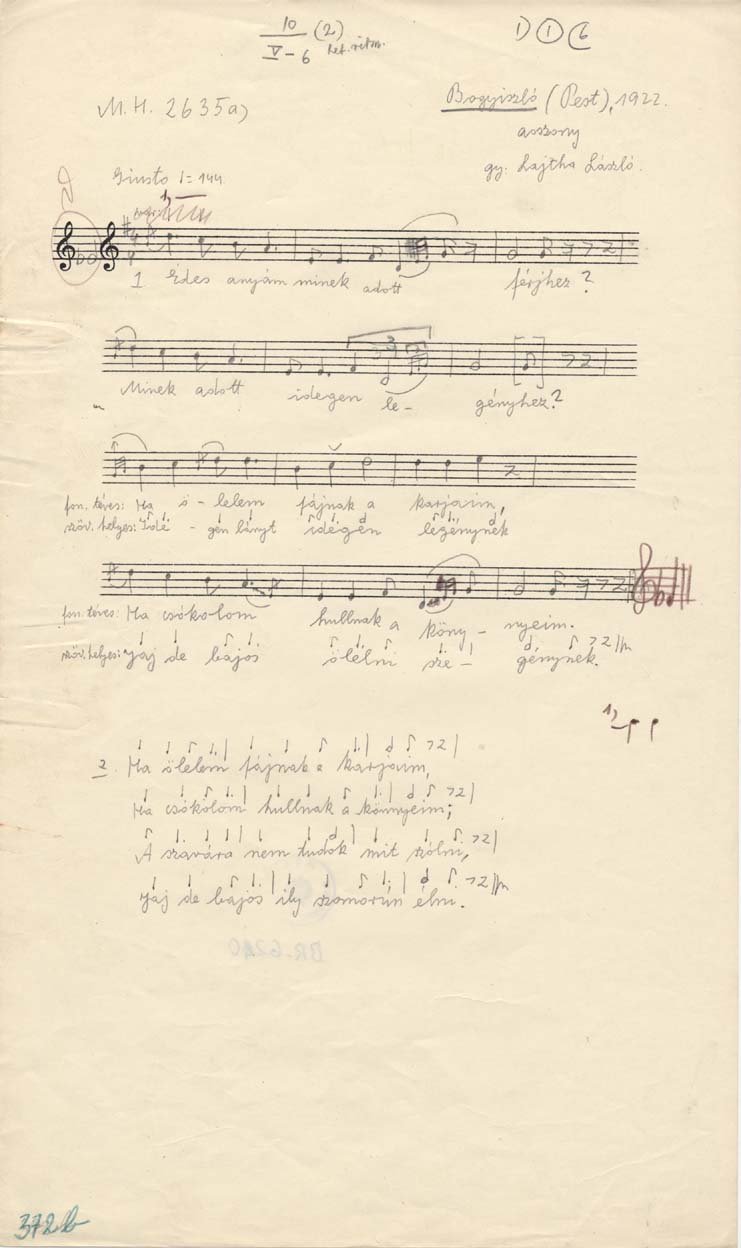 10 (2)
V-6
1) ① 6
M.H. 2635a)
Bogyiszló (Pest), 1922.
asszony
gy: Lajtha László.
Giusto ♩= 144
1 Édes anyám minek adott férjhez?
Minek adott idegen le- gényhez?
fon. téves: Ha ö - lelem fájnak a karjaim,
szöv. helyes: Ide - gen lányt idegen legénynek
fon. téves: Ha csókolom hullnak a köny - nyeim.
szöv. helyes: Jaj de bajos ölelni sze - génynek.
1)
2. Ha ölelem fájnak a karjaim,
Ha csókolom hullnak a könnyeim;
A szavára nem tudok mit szólni,
Jaj de bajos ily szomorún élni.
BR.6210
372b